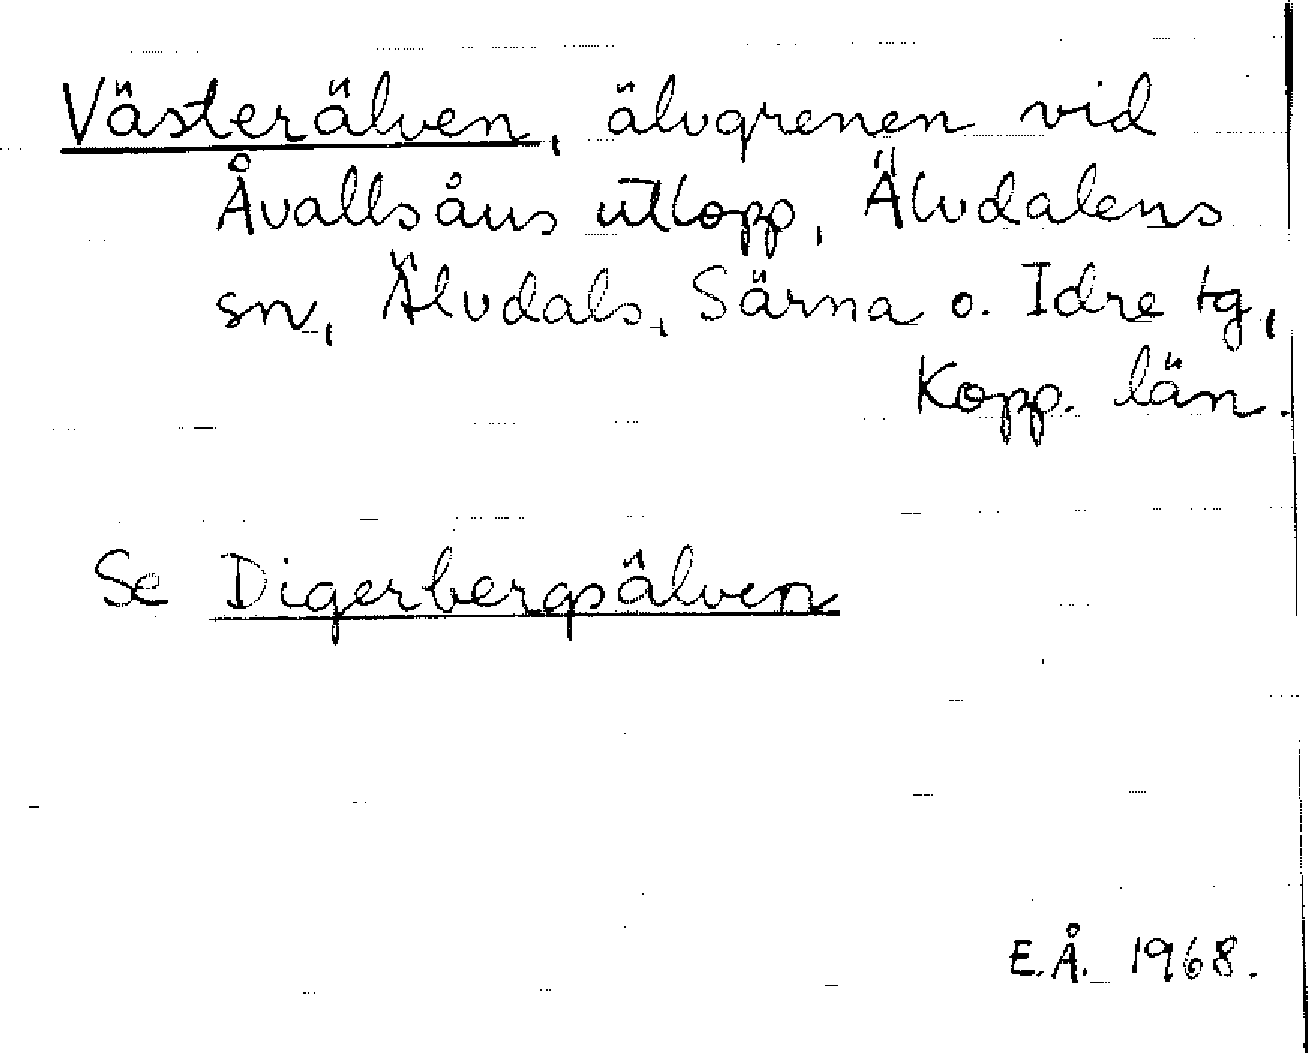 Västerälven, älvgrenen vid
Åvallsåns utlopp, Älvdalens
sn, Älvdals, Särna o. Idre tg,
Kopp. län.
Se Digerbergsälven
E.Å. 1968.